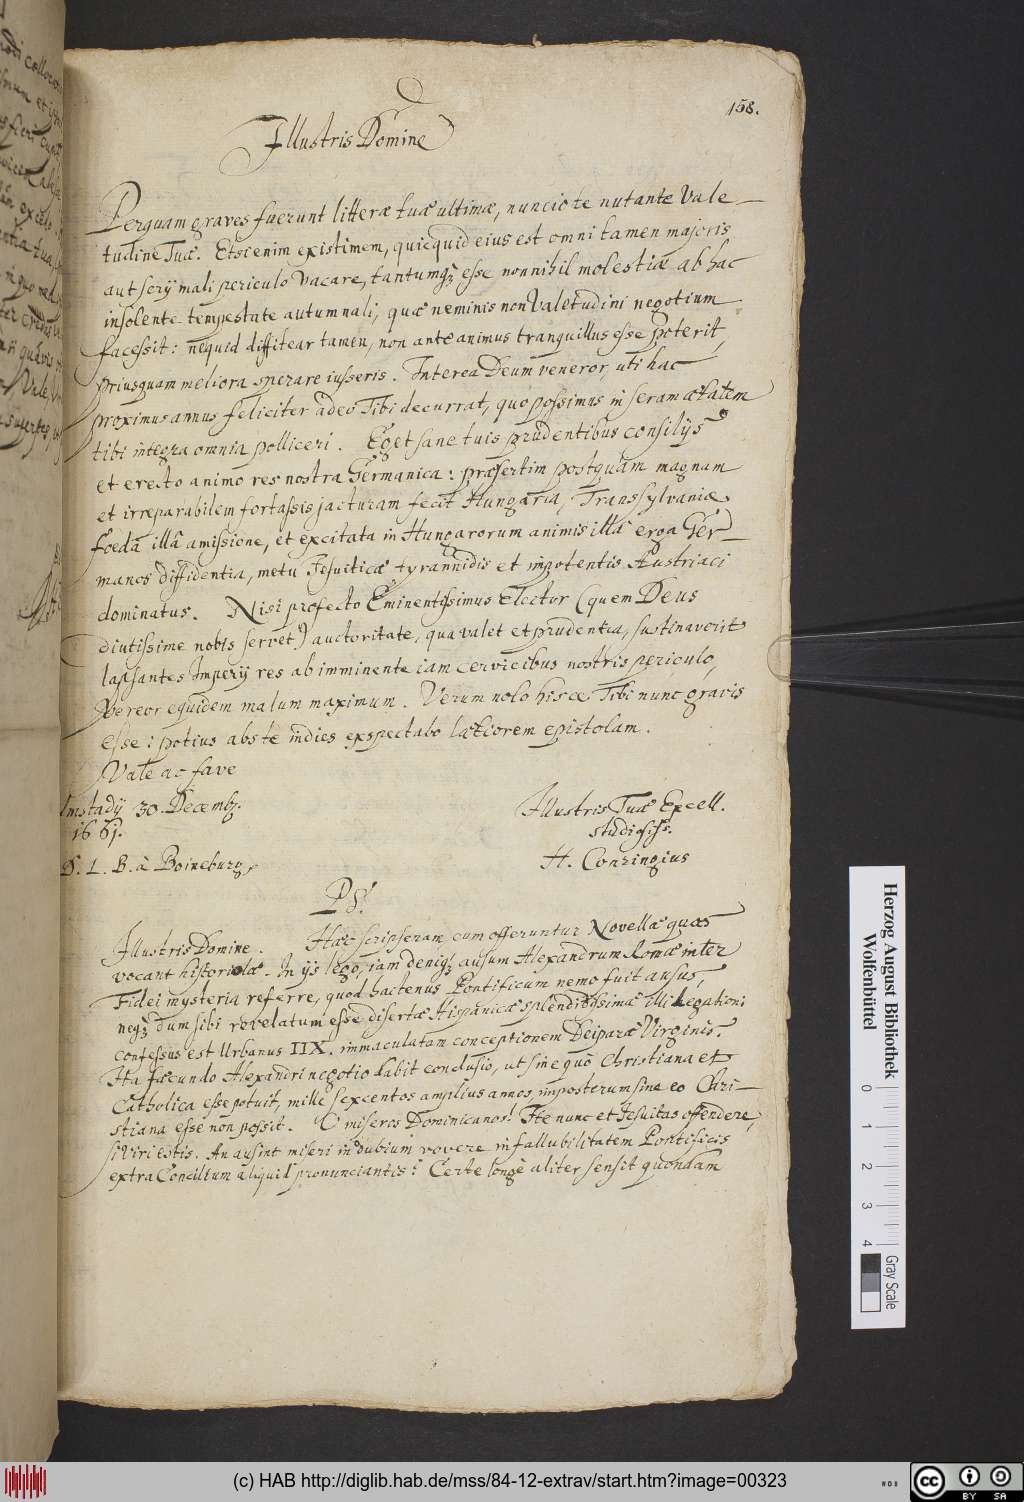 158.
Illustris Domine
Perquam graves fuerunt litteræ tuæ ultimæ, nuncio te nutante Vale-
tudine Tuâ. Etsi enim existimem, quicquid eius est omni tamen majoris
aut serij mali periculo vacare, tantumq; esse nonnihil molestiæ ab hac
insolente tempestate autumnali, quæ neminis non Valetudini negotium
facessit: nequid diffitear tamen, non ante animus tranquillus esse poterit,
priusquam meliora sperare iusseris. Interea Deum veneror, uti hac
proximus annus feliciter adeo Tibi decurrat, quo possimus in seram ætatem
tibi integra omnia polliceri. Eget sane tuis prudentibus consilijs
et erecto animo res nostra Germanica: præsertim postquam magnam
et irreparabilem fortassis jacturam fecit Hungaria, Transsylvaniæ
foedâ illâ amissione, et excitata in Hungarorum animis illâ erga Ger-
manos diffidentia, metu Jesuiticæ tyrannidis et impotentis Austriaci
dominatus. Nisi profecto Eminentissimus Elector (quem Deus
diutissime nobis servet) auctoritate, qua valet et prudentia, sustinaverit
lapsantes Imperij res ab imminente iam cervicibus nostris periculo,
vereor equidem malum maximum. Verum nolo hisce Tibi nunc gravis
esse: potius abs te indies exspectabo lætiorem epistolam.
Vale ac fave
lmstadij 30. Decemb.
1661.
Illustris Tuæ Excell.
studiosiss.
H. Conringius
D. L. B. à Boineburg
PS.
Illustris Domine. Hæc scripseram, cum offeruntur Novellæ quas
vocant historiolæ. In ijs lego, iam deniq; ausum Alexandrum Romæ inter
Fidei mysteria referre, quod hactenus Pontificum nemo fuit ausus,
neq; dum sibi revelatum esse disertæ Hispanicæ splendidissimæ illi legationi
confessus est Urbanus IIX. immaculatam conceptionem Deiparæ Virginis.
Ita facundo Alexandri negotio dabit conclusio, ut sine quo Christiana et
Catholica esse potuit, mille sexcentos amplius annos, imposterum sine eo Chri-
stiana esse non possit. O miseros Dominicanos! Ite nunc et Jesuitas offendere,
si viri estis. An ausint miseri in dubium vovere infallubilitatem Pontificis
extra Concilium aliquid pronunciantis? Certe longè aliter sensit quondam
Herzog August Bibliothek
Wolfenbüttel
0 1 2 3 4
Gray Scale
(c) HAB http://diglib.hab.de/mss/84-12-extrav/start.htm?image=00323
cc BY SA